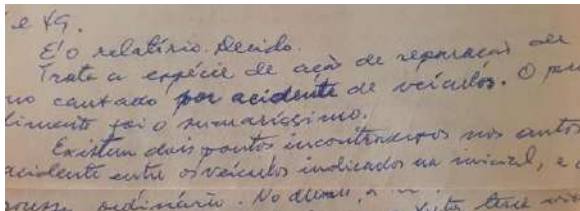 e 49.
É o relatório. Decido.
Trata a espécie de ação de reparação de
no causado por acidente de veículos. O pro
dimento foi o sumaríssimo.
Existem dois pontos incontroversos nos autos
acidente entre os veículos indicados na inicial, e o
ordinário. No